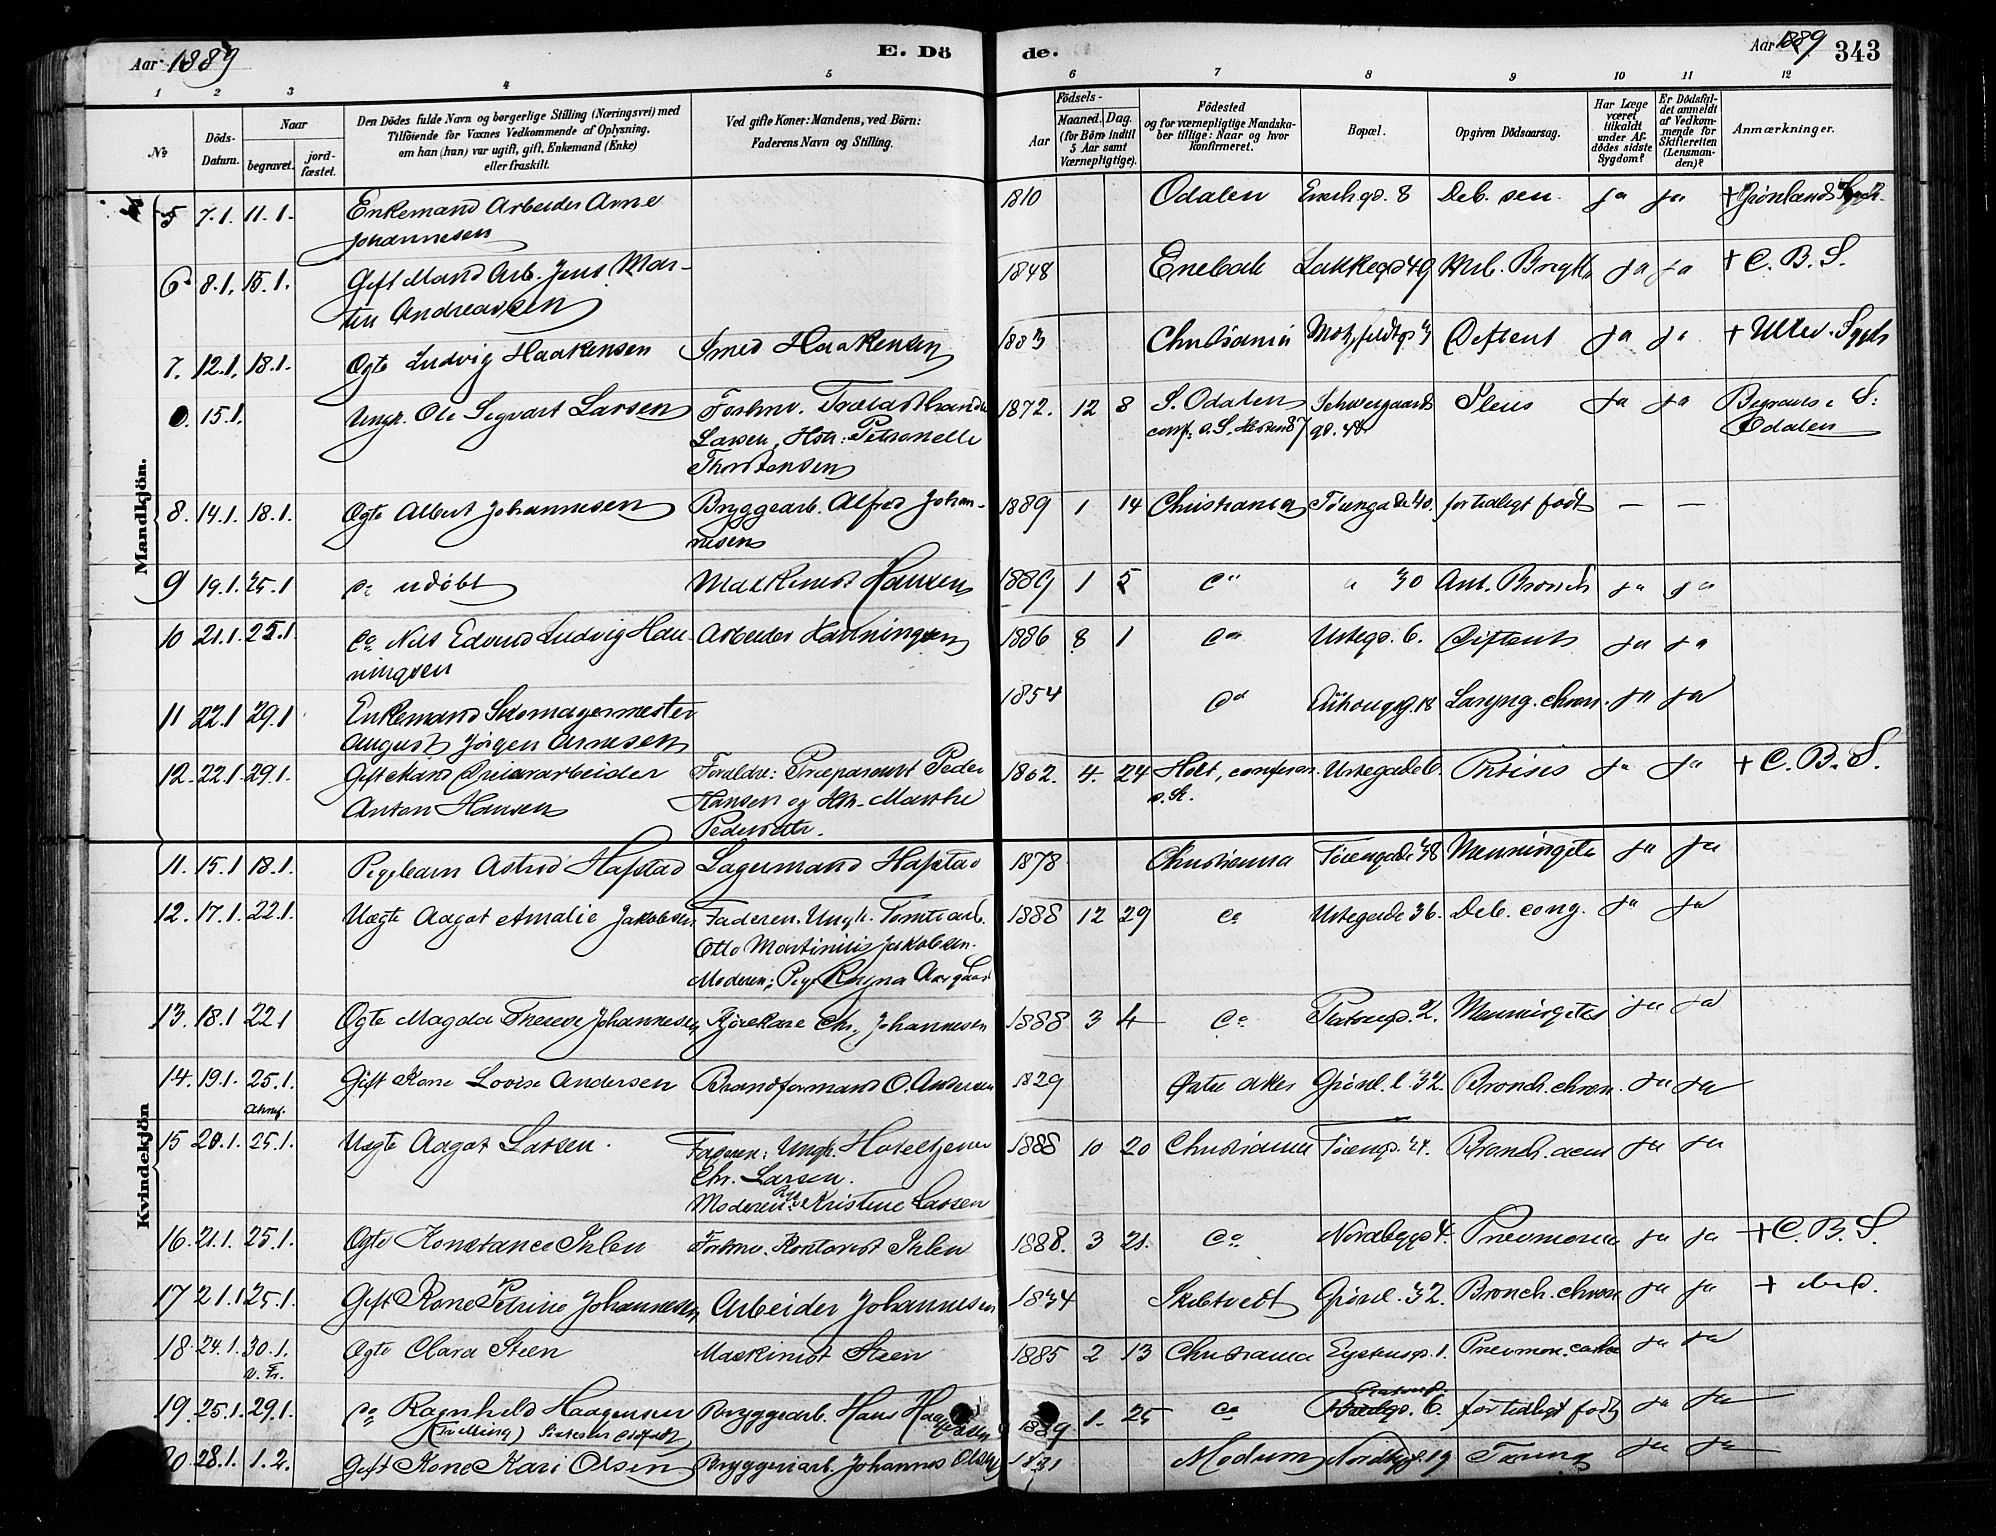 Aar 1889
E. Dö
de.
Aar 1889
343
1 2 3 4 5 6 7 8 9 10 11 12
No
Döds-Datum.
Naar
begravet.
jordfæstet.
Den Dödes fulde Navn og borgerlige Stilling (Næringsvei) med
Tilföiende for Voxnes Vedkommende af Oplysning,
om han (hun) var ugift, gift, Enkemand (Enke)
eller fraskilt.
Ved gifte Koner: Mandens, ved Börn:
Faderens Navn og Stilling.
Födsels-
Aar
Maaned. Dag.
(for Börn indtil
5 Aar samt
Værnepligtige).
Födested
og for værnepligtige Mandska-
ber tillige: Naar og hvor
konfirmeret.
Bopæl.
Opgiven Dödsaarsag.
Har Læge
været
tilkaldt
under Af-
dödes sidste
Sygdom?
Er Dödsfal-
det anmeldt
af Vedkom-
mende for
Skifteretten
(Lensman-
den)?
Anmærkninger.
Mandkjön.
5 7.1. 11.1. Enkemand Arbeider Arne 1810 Odalen 8 Deb. sen. ja ja + Grønlands Sygeh.
Johannesen
6 8.1. 15.1. Gift Mand Arb. Jens Mar- 1848 Enebak Lakkegd 49 Mrb. Brigth ja ja + C. B. S.
tin Andreassen
7. 12.1. 18.1. Ægte Ludvig Haakensen Smed Haakensen 1883 Christiania Motzfeldtsg 3 Difterit ja ja + Ullev. Sygeh
0. 15.1. Ungk. Ole Sigvart Larsen Forhnv. Trælasthandler 1872. 12 8 S. Odalen Schweigaards Ileus ja ja Begraves i S:
Larsen, Hstr: Petronelle conf. gd. 48 Odalen
Thorstensen
8. 14.1. 18.1. Ægte Albert Johannesen Bryggearb. Alfred Johan- 1889 1 14 Christiania Tøiengade 40. for tidligt født — —
nesen
9 19.1. 25.1 do udøbt Maskinist Hansen 1889 1 5 do " 30 Ant. Bronch ja ja
10 21.1. 25.1 do Nils Edvard Ludvig Hen- Arbeider Henningsen 1886 8 1 do Urtegd. 6. Difterit ja ja
ningsen
11 22.1 29.1 Enkemand Skomagermester 1854 do 18 Laryng. chron. ja ja
August Jörgen Arnesen
12. 22.1. 29.1. Gift Mand Dreierarbeider Foreldre: Præparant Peder 1862. 4. 24 Holt, Urtegade 6. Phtisis ja ja + C. B. S.
Anton Hansen Hansen og Hstr. Marthe
Pedersdtr.
Kvindekjön
11. 15.1 18.1. Pigebarn Astrid Hafstad Lagermand Hafstad 1878 Christiania Tøiengade 38 Meningite ja ja
12. 17.1. 22.1. Uægte Aagot Amalie Jakobsen Faderen. Ungk. Tomtearb. 1888 12 29 do Urtegade 36. Deb. cong. ja ja
Otto Martinius Jakobsen.
Moderen; Pige Ragna
13. 18.1 22.1 Ægte Magda Therese Johannesen Kjørekarl Chr. Johannesen 1888 3 4 do Platousgd. 2. Meningites ja ja
14. 19.1. 25.1. Gift Kone Lovise Andersen Brandformand O. Andersen 1829 Østre Aker Grønl. l. 32. Bronch. chron. ja ja
15 20.1. 25.1. Uægte Aagot Larsen. Faderen: Ungk. Hoteltjener 1888 10 20 Christiania Tøiengd. Bronch. acut ja ja
Chr. Larsen.
Moderen: Pige Kristine Larsen
16. 21.1. 25.1. Ægte Konstance Ihlen Forhnv. Kontorist Ihlen 1888. 3 21. do Nordbygd 4. Pnevmonia ja ja + C. B. S.
17 21.1 25.1. Gift Kone Petrine Johannesen Arbeider Johannesen 1834 Skibtvedt Grønl. 32. Bronch. chron ja ja +
18. 24.1. 30.1. Ægte Clara Steen Maskinist Steen 1885 2 13 Christiania Eystensgd. 1. Pnevmon. ja ja
v. Fr.
19. 25.1. 29.1. do Ragnhild Haagensen Bryggearb. Hans Haagensen 1889 1. 25 do 6. for tidligt født ja ja
(Tvilling)
20. 28.1. 1.2. Gift Kone Kari Olsen Bryggeriarb. Johannes Olsen 1831 Modum Nordbygd. 19 Tæring ja ja